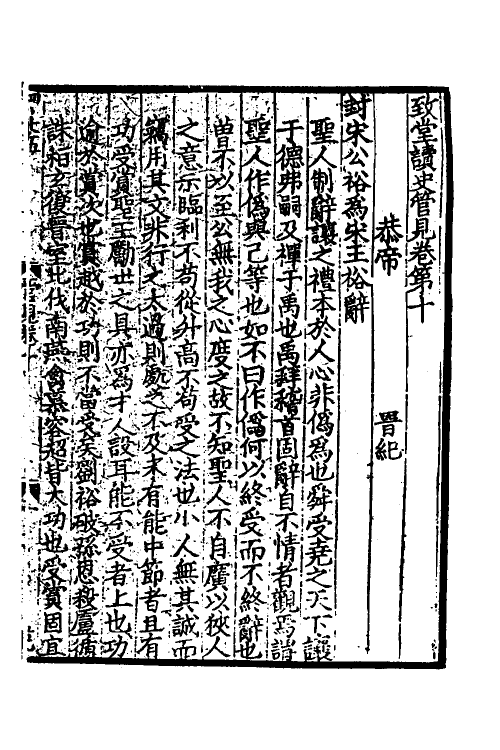 致堂讀史管見卷第十
恭帝 晉紀
封宋公裕爲宋王裕辭
聖人制辭讓之禮本於人心非僞爲也舜受堯之天下讓
于德弗嗣及禪于禹也禹拜稽首固辭自不情者觀焉謂
聖人作僞與己等也如不曰作僞何以終受而不終辭也
曽不以至公無我之心度之故不知聖人不自廣以狹人
之意示臨利不苟從升高不苟受之法也小人無其誠而
竊用其文非行之太過則處之不及未有能中節者且有
功受賞聖王勵世之具亦爲才人設耳能不受者上也功
逾於賞次也賞越於功則不當受矣劉裕破孫恩殺盧循
誅桓玄復晉室北伐南燕禽慕容超皆大功也受賞固宜